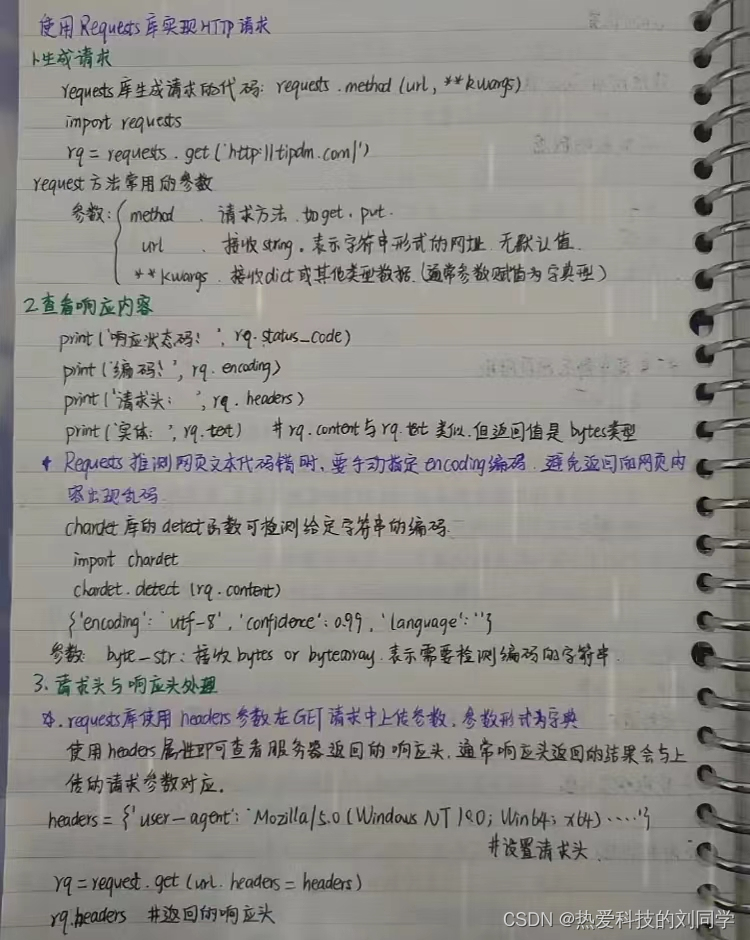 使用Requests库实现HTTP请求
1.生成请求
requests库生成请求的代码: requests.method(url, **kwargs)
import requests
rq = requests.get('http://tipdm.com/')
request方法常用的参数
参数: { method . 请求方法. to get. put.
url . 接收string. 表示字符串形式的网址. 无默认值.
**kwargs . 接收dict或其他类型数据. (通常参数赋值为字典型)
2.查看响应内容
print('响应状态码: ', rq.status_code)
print('编码: ', rq.encoding)
print('请求头: ', rq.headers)
print('实体: ', rq.text) # rq.content与rq.text 类似. 但返回值是bytes类型
* Requests 推测网页文本代码错时, 要手动指定encoding编码. 避免返回的网页内
容出现乱码.
chardet库的detect函数可检测给定字符串的编码.
import chardet
chardet.detect(rq.content)
{'encoding': 'utf-8', 'confidence': 0.99, 'language': ''}
参数: byte_str: 接收bytes or bytearray. 表示需要检测编码的字符串.
3. 请求头与响应头处理
requests库使用 headers 参数在GET请求中上传参数. 参数形式为字典
使用headers属性即可查看服务器返回的响应头. 通常响应头返回的结果会与上
传的请求参数对应.
headers = {'user-agent': 'Mozilla/5.0 (Windows NT 10.0; Win64; x64) ....'}
#设置请求头.
rq = request.get(url. headers = headers)
rq.headers #返回的响应头
CSDN @热爱科技的刘同学